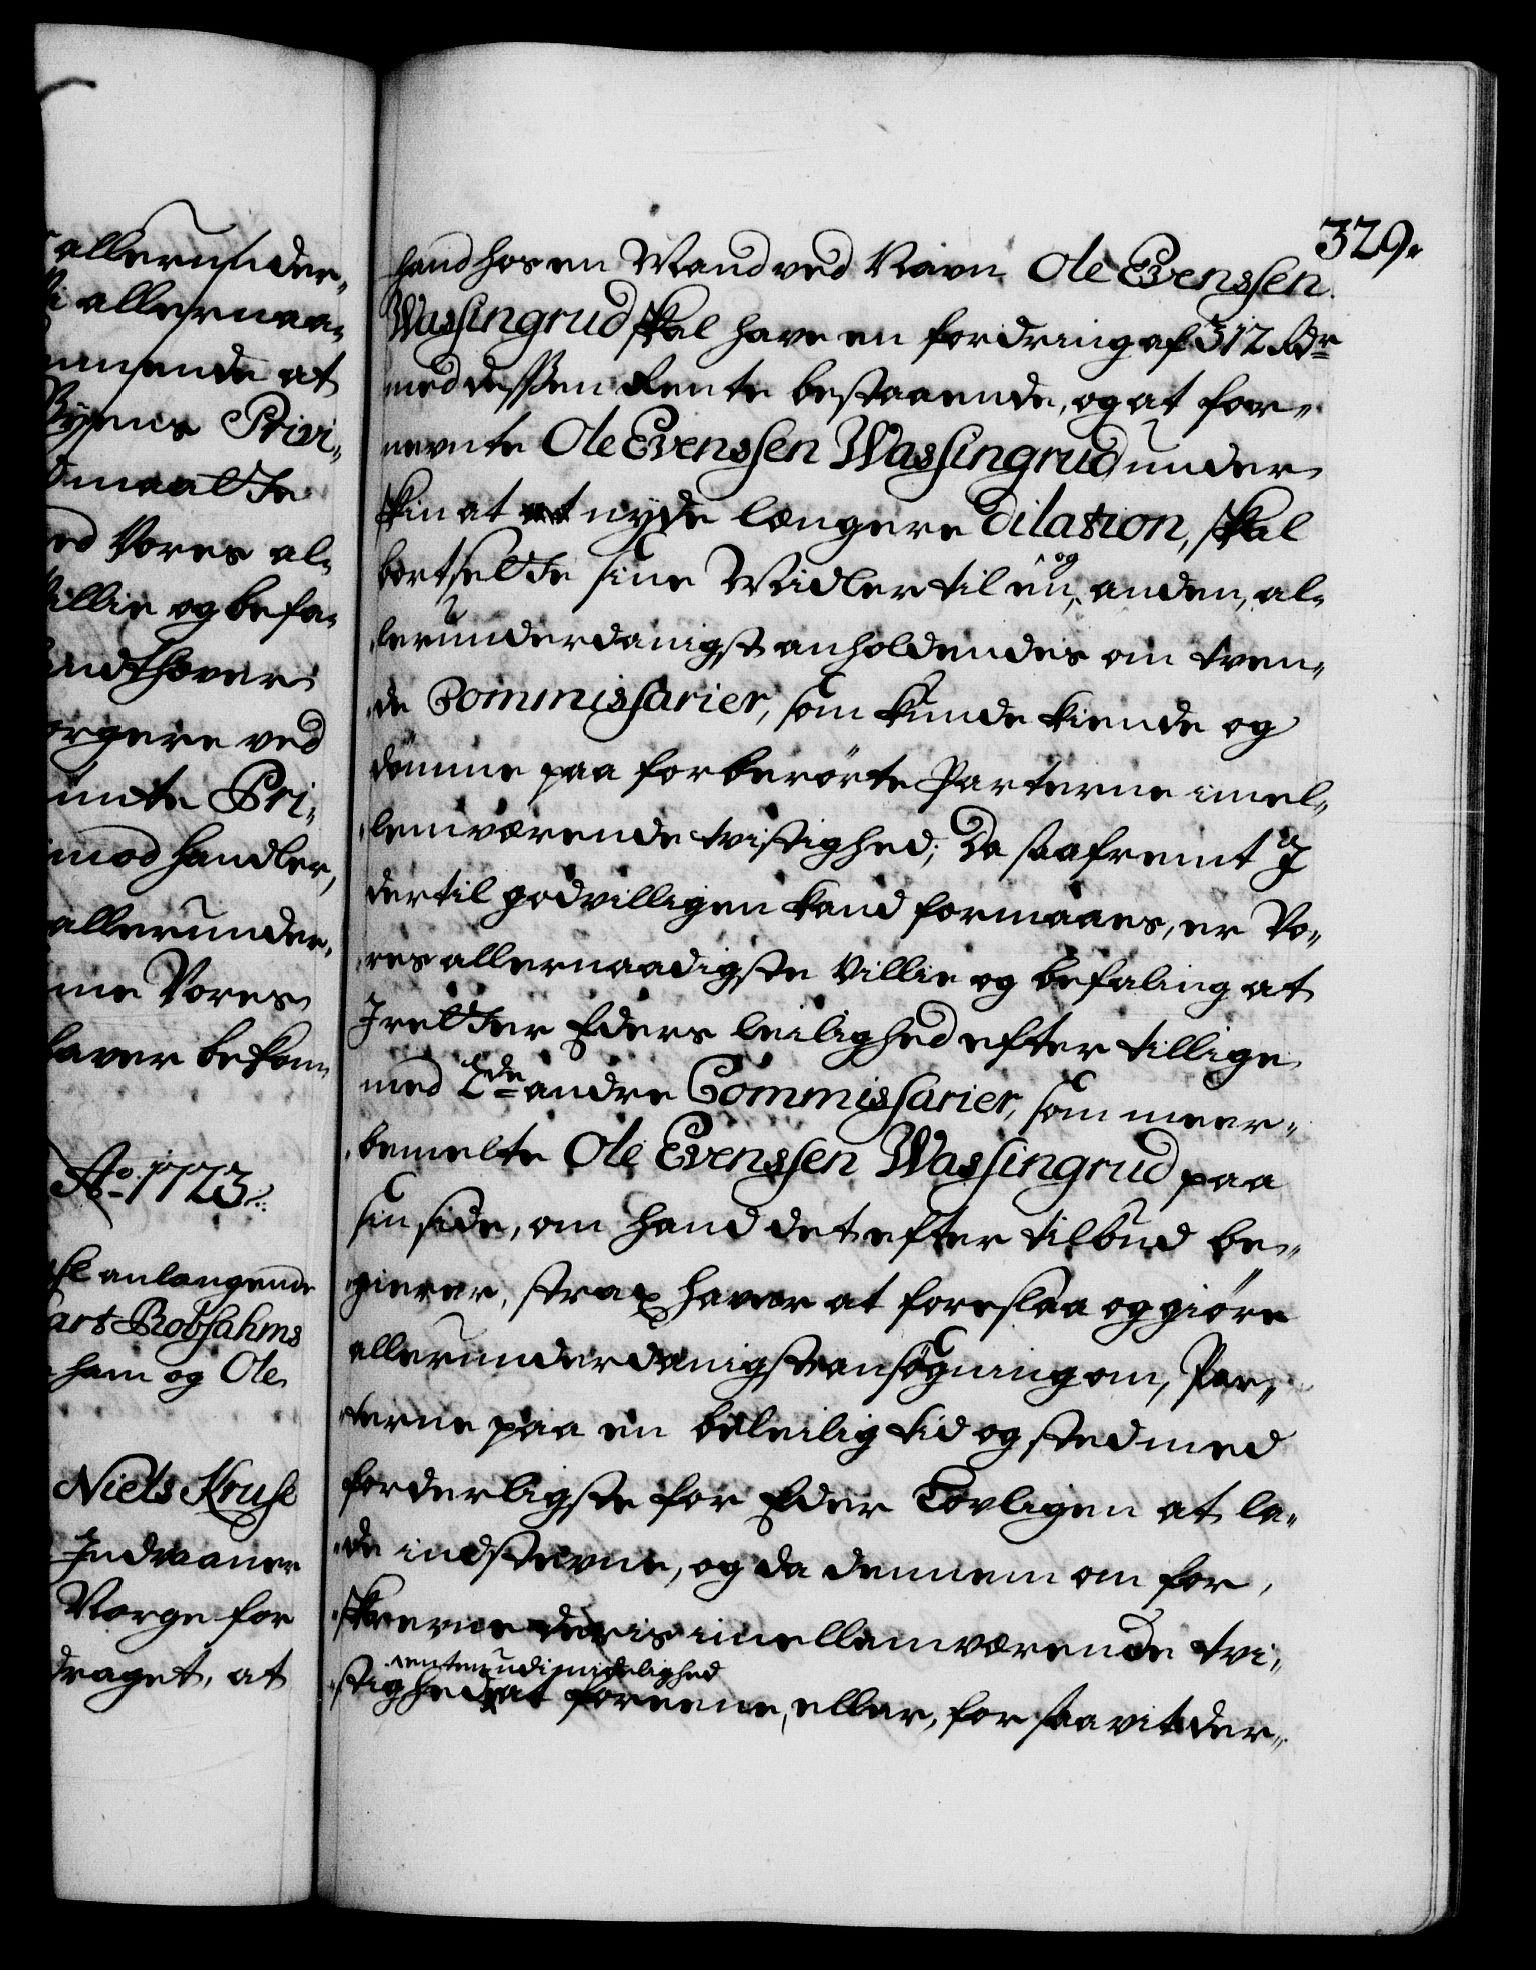 allerunder-
allernaa-
at
Byens Privi-
ed Vores al-
Villie og befa-
orgere ved
Pri-
imod handler,
allerunder-
me Vores
laver bekom-
Ao 1723.
anlangende
Robsahms
ham og Ole
Niels Kruse
Indvaaner
Norge for
draget, at
329.
hand hos en Mand ved Navn Ole Evenssen
Wassingrud skal have en fordring af 312 Rdr
med dessen Rente bestaaende, og at for-
nevnte Ole Evenssen Wassingrud under
skin at nyde længere dilation, skal
bortsette sine Midler til en og anden, al-
lerunderdanigst anholdendes om tven-
de Commissarier, som kunde kiende og
dømme paa forberørte Parterne imel-
lemværende tvistighed; Da saafremt I
dertil godvilligen kand formaaes, er Vo-
res allernaadigste Villie og befaling at
I retter Eders leilighed efter tillige
med 2de andre Commissarier, som meer-
bemelte Ole Evenssen Wassingrud paa
sin side, om hand det efter tilbud be-
gierer, strax haver at foreslaa og giøre
allerunderdanigst ansøgning om, Par-
terne paa en beleilig tid og sted med
forderligste for Eder Lovligen at la-
de indstevne, og da dennem om for-
skrevne deris imellemværende tvi-
enten udi mindelighed
stighed at foreene, eller, for saavit der-